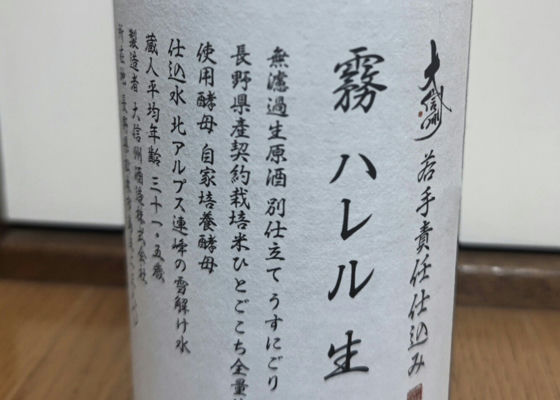 大信州
若手責任仕込み
霧ハレル生
無濾過生原酒 別仕立て うすにごり
長野県産契約栽培米ひとごこち全量
使用酵母 自家培養酵母
仕込水 北アルプス連峰の雪解け水
蔵人平均年齢 三十一・五歳
製造者 大信州酒造株式会社
所在地 長野県